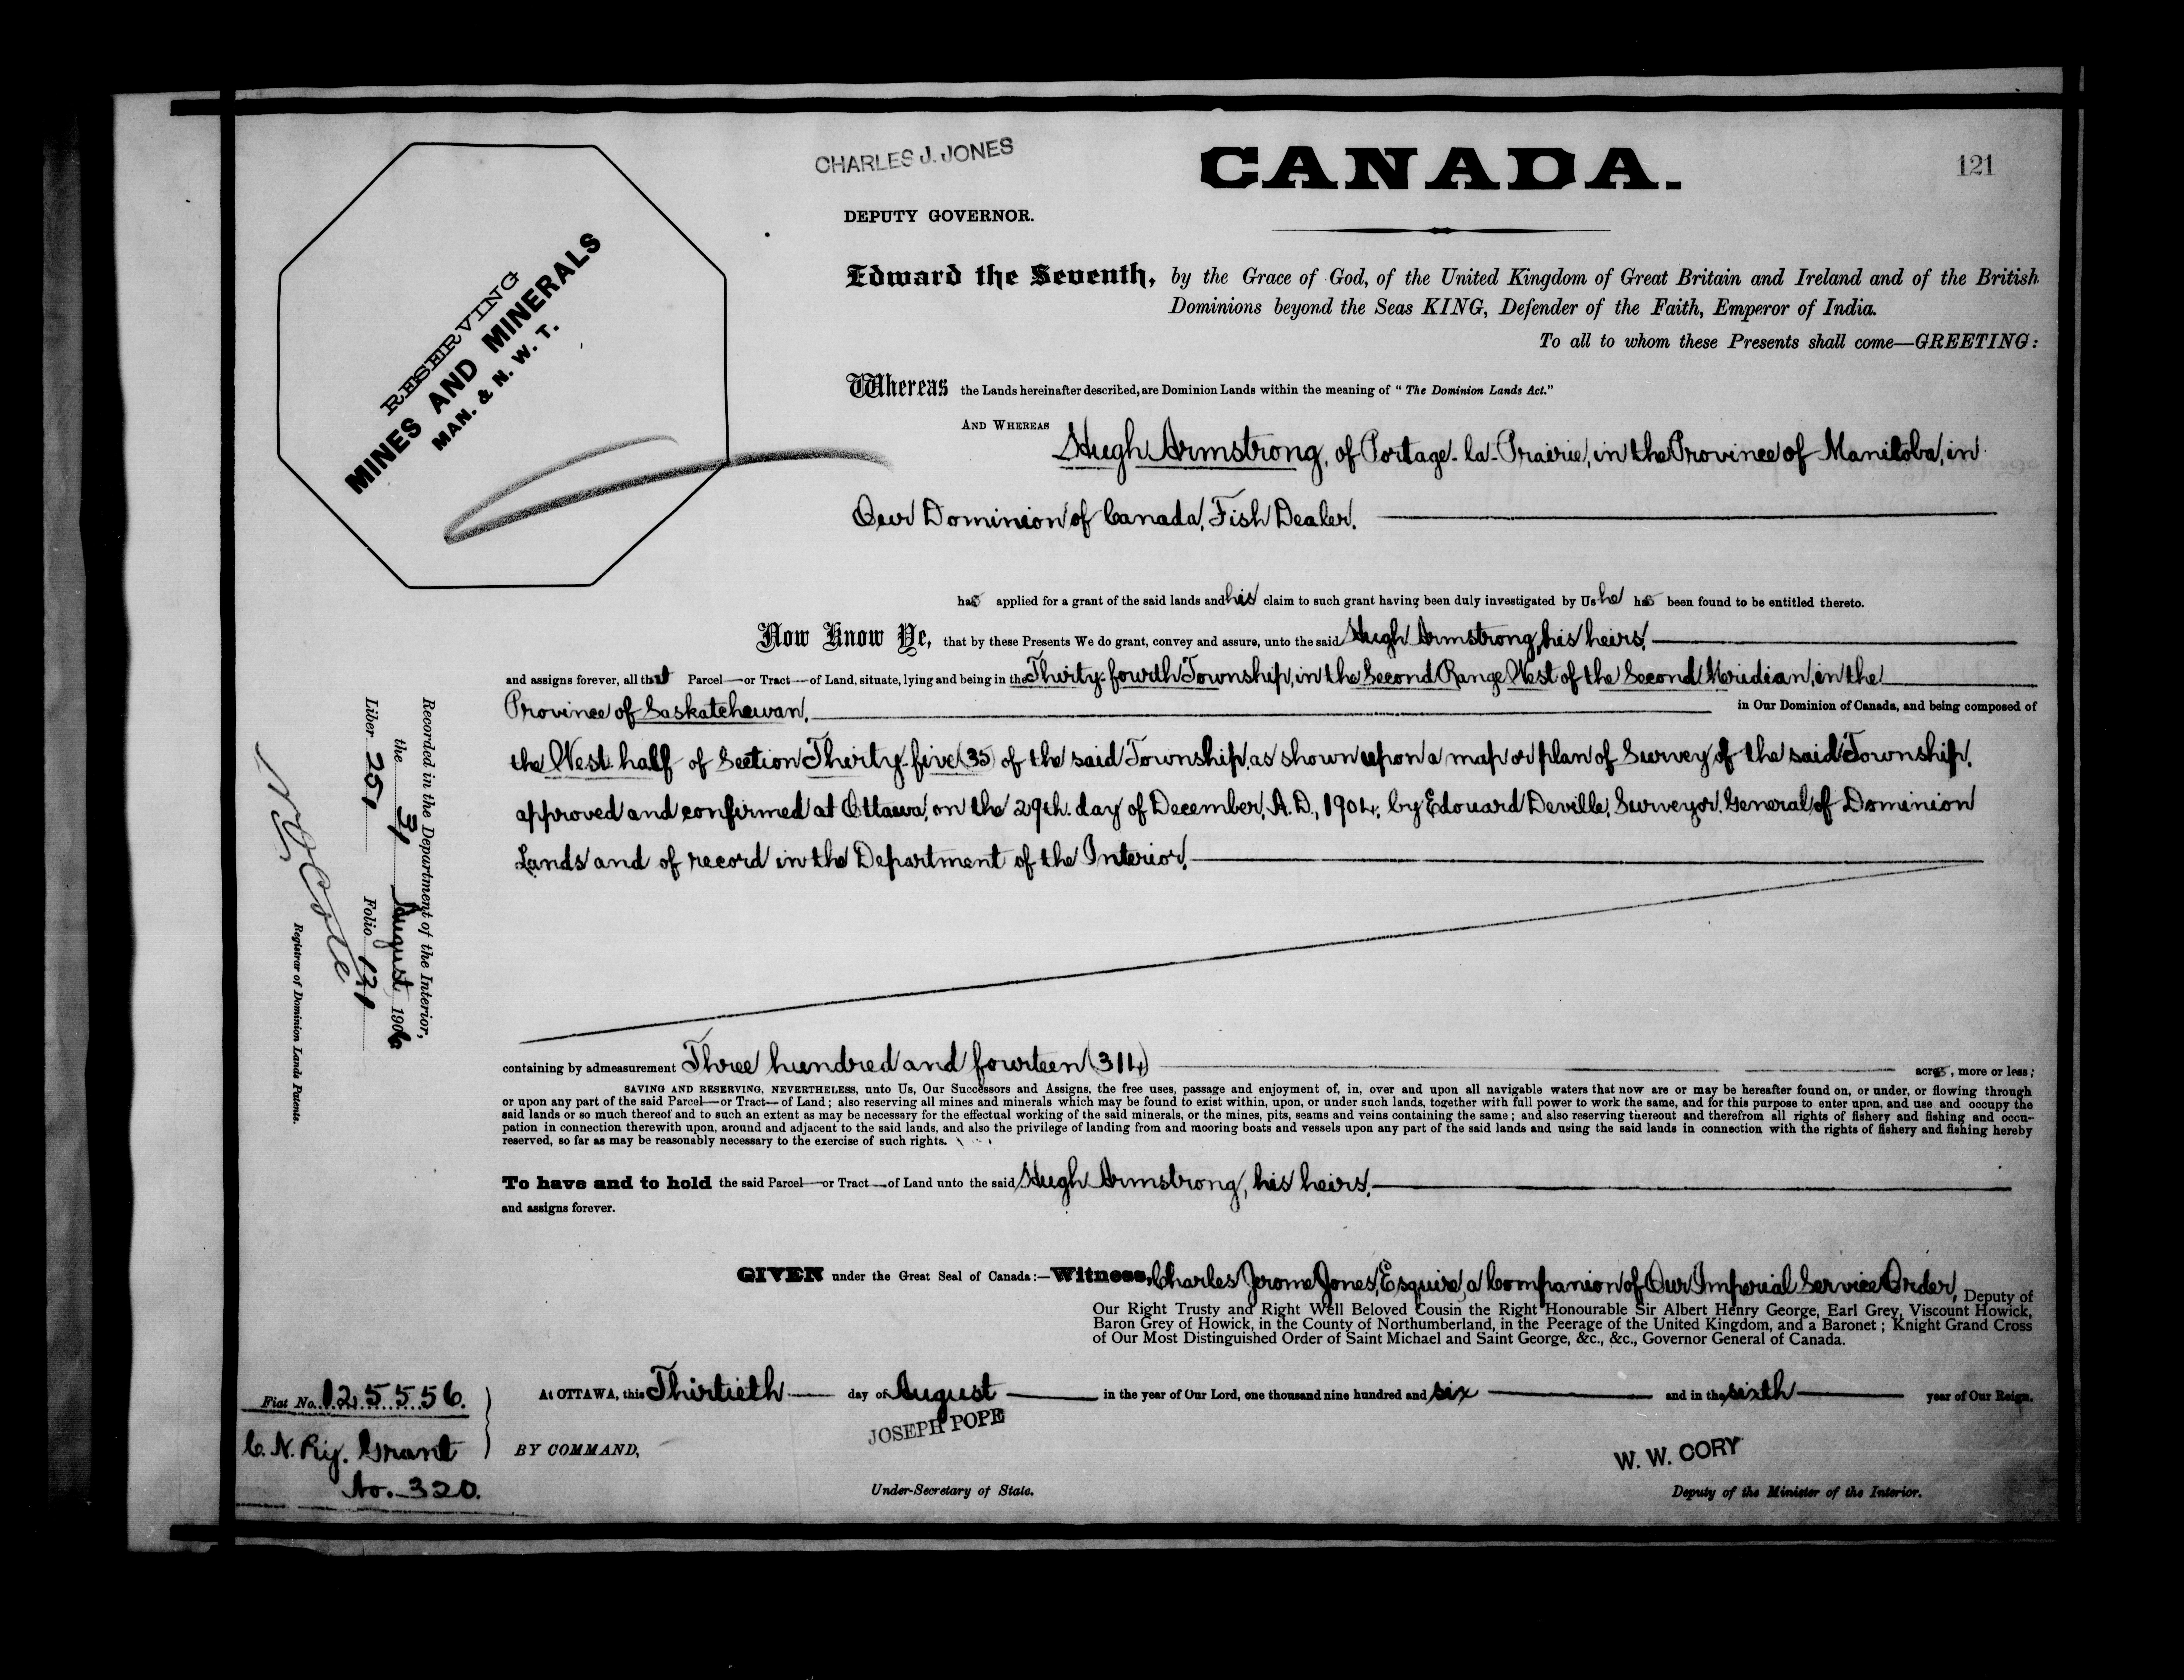 CHARLES J. JONES
CANADA.
121
DEPUTY GOVERNOR.
RESERVING
MINES AND MINERALS
MAN. & N. W. T.
Edward the Seventh, by the Grace of God, of the United Kingdom of Great Britain and Ireland and of the British
Dominions beyond the Seas KING, Defender of the Faith, Emperor of India.
To all to whom these Presents shall come—GREETING:
Whereas the Lands hereinafter described, are Dominion Lands within the meaning of "The Dominion Lands Act."
AND WHEREAS Hugh Armstrong, of Portage-la-Prairie, in the Province of Manitoba, in
Our Dominion of Canada, Fish Dealer.
has applied for a grant of the said lands and his claim to such grant having been duly investigated by Us he has been found to be entitled thereto.
Now Know Ye, that by these Presents We do grant, convey and assure, unto the said Hugh Armstrong, his heirs.
and assigns forever, all that Parcel—or Tract—of Land, situate, lying and being in the Thirty-fourth Township, in the Second Range West of the Second Meridian, in the
Province of Saskatchewan, in Our Dominion of Canada, and being composed of
the West half of Section Thirty-five (35) of the said Township, as shown upon a map or plan of Survey of the said Township,
approved and confirmed at Ottawa, on the 29th. day of December, A.D., 1904, by Edouard Deville, Surveyor General of Dominion
Lands and of record in the Department of the Interior.
Recorded in the Department of the Interior,
the 31 August 1906
Liber 251 Folio 121
Registrar of Dominion Lands Patents.
containing by admeasurement Three hundred and fourteen (314) acres, more or less;
SAVING AND RESERVING, NEVERTHELESS, unto Us, Our Successors and Assigns, the free uses, passage and enjoyment of, in, over and upon all navigable waters that now are or may be hereafter found on, or under, or flowing through
or upon any part of the said Parcel—or Tract—of Land; also reserving all mines and minerals which may be found to exist within, upon, or under such lands, together with full power to work the same, and for this purpose to enter upon, and use and occupy the
said lands or so much thereof and to such an extent as may be necessary for the effectual working of the said minerals, or the mines, pits, seams and veins containing the same; and also reserving thereout and therefrom all rights of fishery and fishing and occu-
pation in connection therewith upon, around and adjacent to the said lands, and also the privilege of landing from and mooring boats and vessels upon any part of the said lands and using the said lands in connection with the rights of fishery and fishing hereby
reserved, so far as may be reasonably necessary to the exercise of such rights.
To have and to hold the said Parcel—or Tract—of Land unto the said Hugh Armstrong, his heirs.
and assigns forever.
GIVEN under the Great Seal of Canada:—Witness, Charles Jerome Jones, Esquire, a Companion of Our Imperial Service Order, Deputy of
Our Right Trusty and Right Well Beloved Cousin the Right Honourable Sir Albert Henry George, Earl Grey, Viscount Howick,
Baron Grey of Howick, in the County of Northumberland, in the Peerage of the United Kingdom, and a Baronet; Knight Grand Cross
of Our Most Distinguished Order of Saint Michael and Saint George, &c., &c., Governor General of Canada.
At OTTAWA, this Thirtieth day of August in the year of Our Lord, one thousand nine hundred and six and in the sixth year of Our Reign.
Fiat No. 125556.
C. N. Ry. Grant
No. 320.
BY COMMAND,
JOSEPH POPE
Under-Secretary of State.
W. W. CORY
Deputy of the Minister of the Interior.